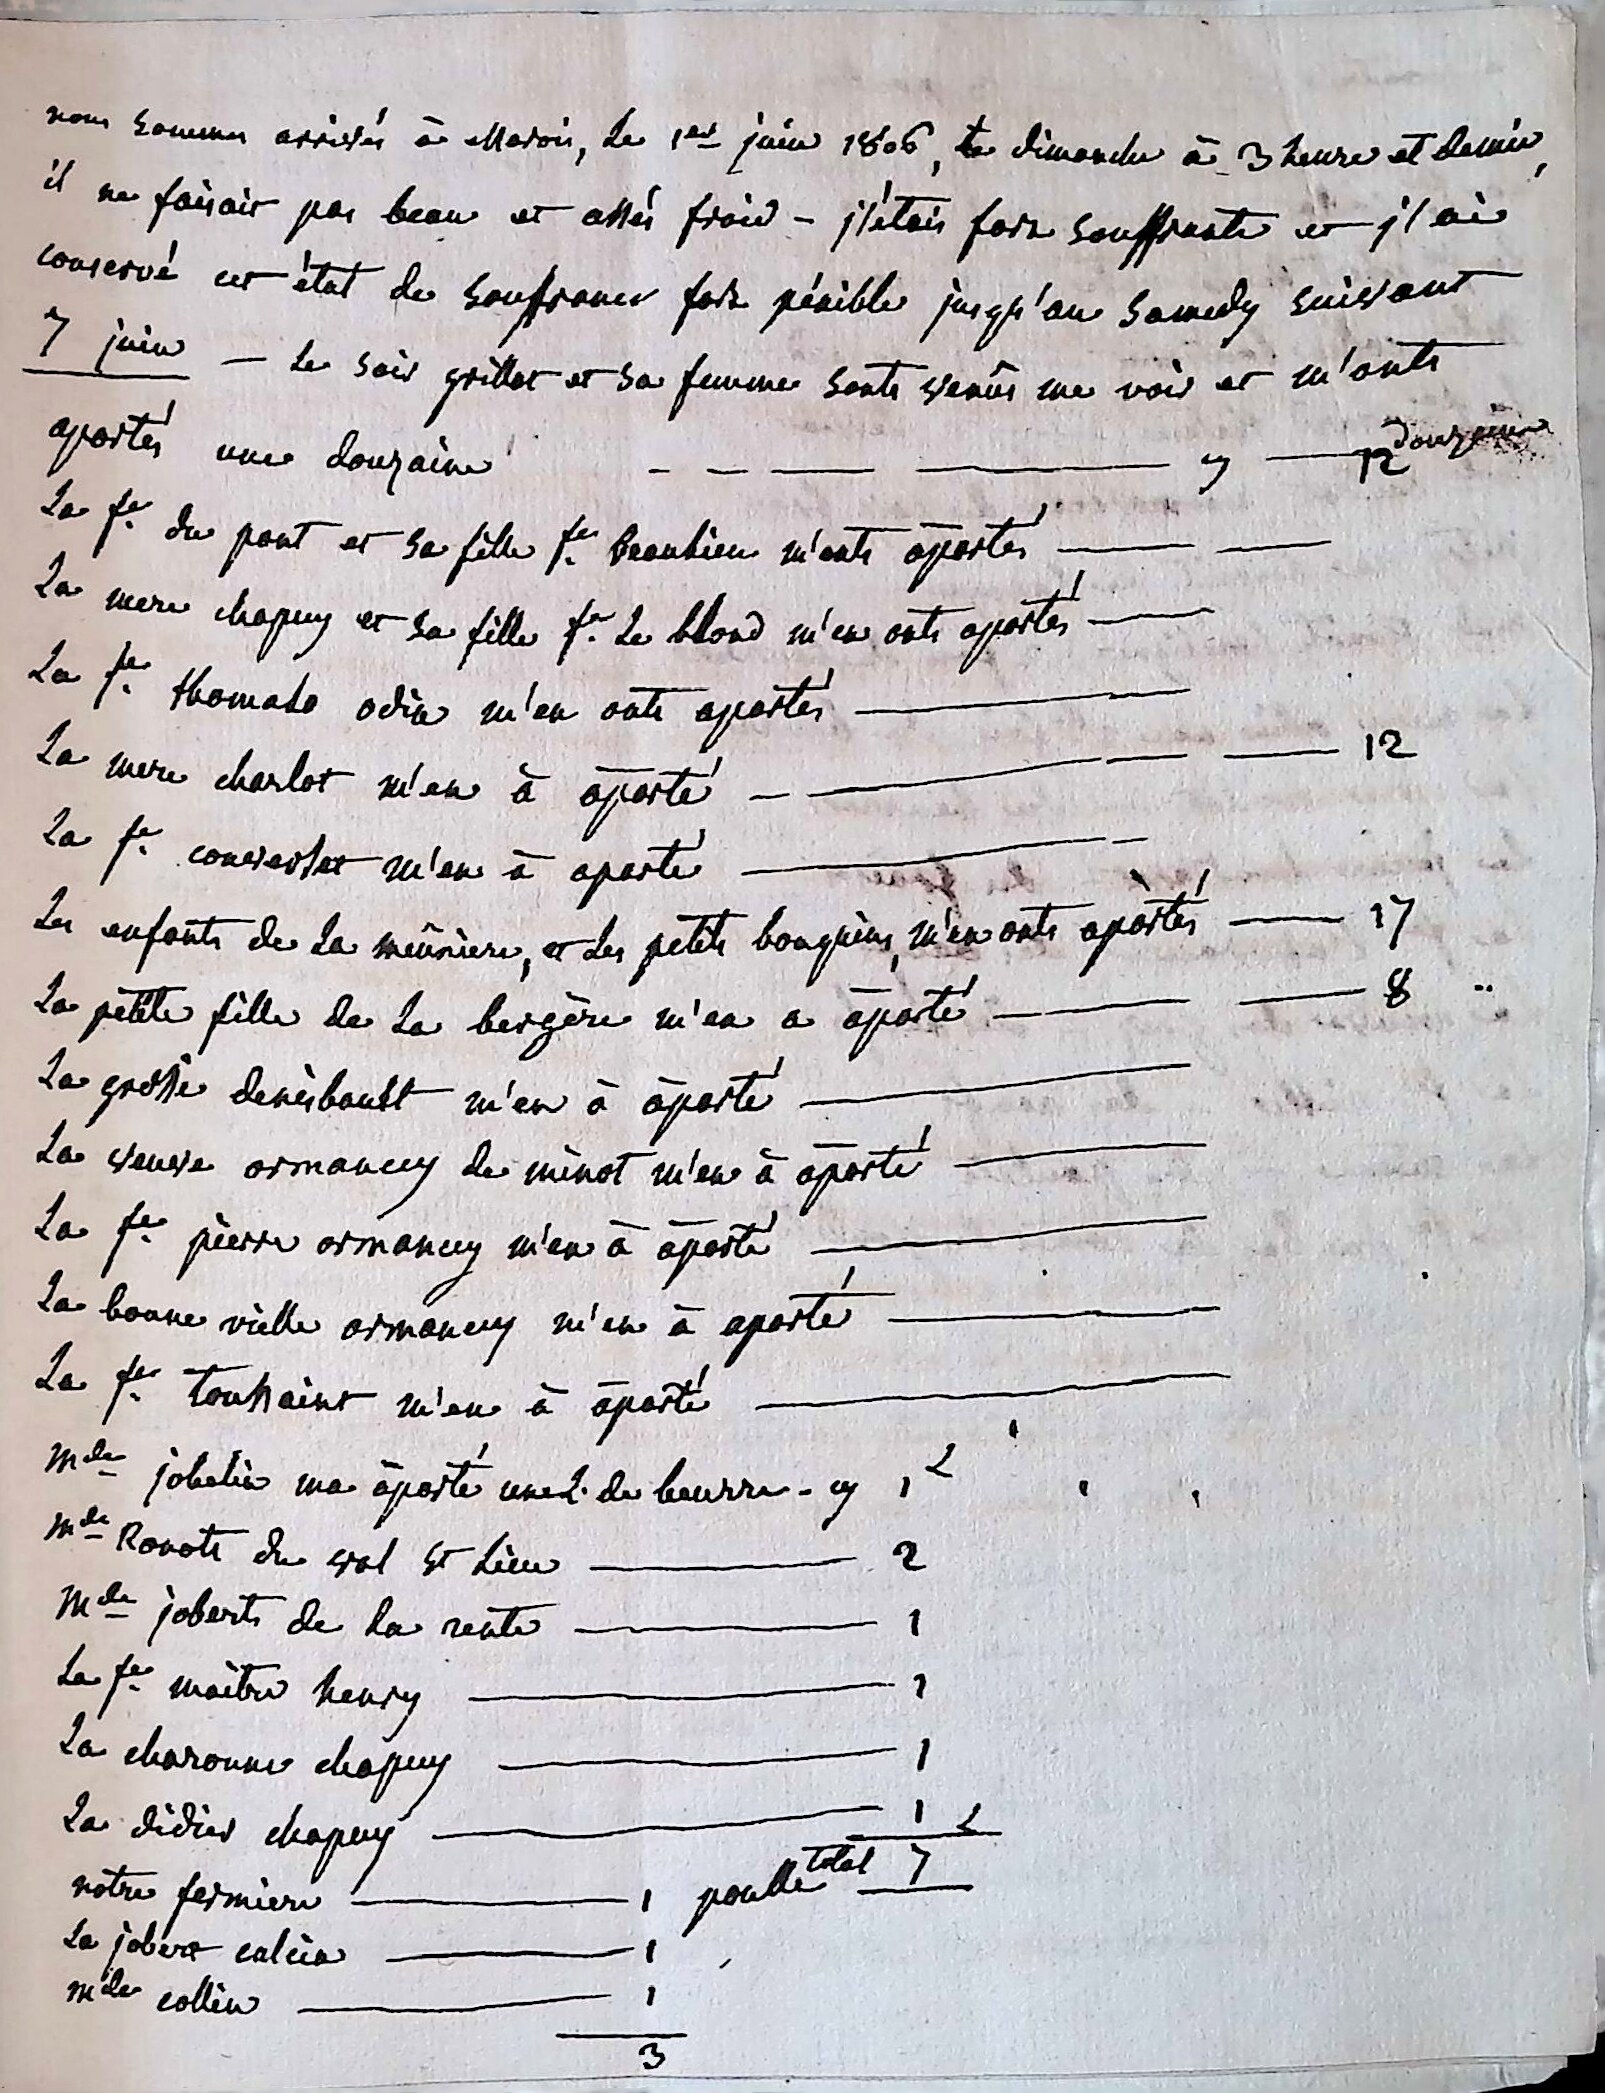 nous sommes arrivés à Maroir, Le 1er juin 1806, Le dimanche à 3 heure et demie,
il ne faisoit pas beau et assés froid – j'étois fort souffrante et j'ai
conservé cet état de souffrance fort pénible jusqu'au Samedy suivant
7 juin — Le soir grillot et sa femme sonts venûs me voir et m'onts
aportés une douzaine — — — — cy — 12 douzaine
La fe. du pont et sa fille fe. beaulieu m'onts aportés — —
La mere chapuy et sa fille fe. Le blond m'en onts aportés —
La fe. thomas odin m'en onts aportés —
La mere charlot m'en à aporté — — — — 12
La fe. converset m'en à aporté —
Les enfants de La meûniere, et Les petits bouquins, m'en onts aportés — 17
La petite fille de La bergère m'en a aporté — — 8 "
La grosse denisbault m'en à aporté —
La veuve ormancey de minot m'en à aporté —
La fe. pierre ormancey m'en à aporté —
La bonne vielle ormancey m'en à aporté —
La fe. toussaint m'en à aporté —
Mde jobelin ma aporté une L. de beurre - cy 1 L
Mde Ronots du val St Lieu — 2
Mde joberts de La rente — 1
La fe. maitre henry — 1
La charonne chapuy — 1
La didier chapuy — 1 L
total 7
notre fermiere — 1 poulle
La jobert — 1
Mde collin — 1
3